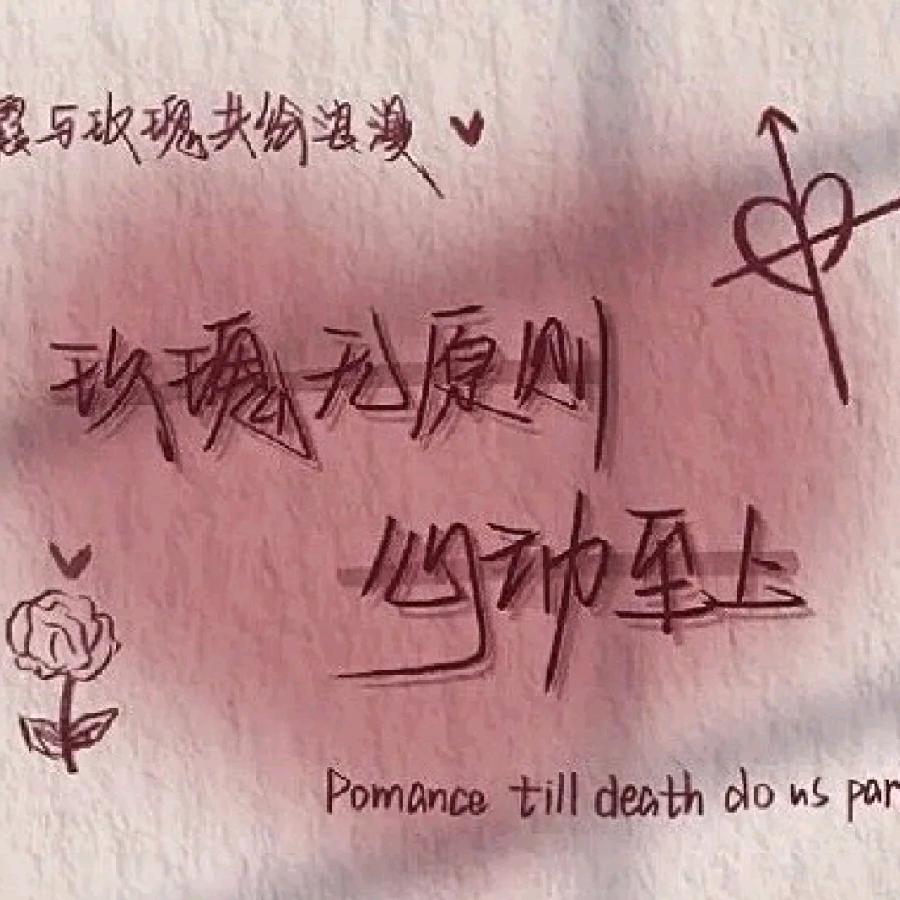 霞与玫瑰共绘浪漫
玫瑰无原则
心动至上
Pomance till death do us par